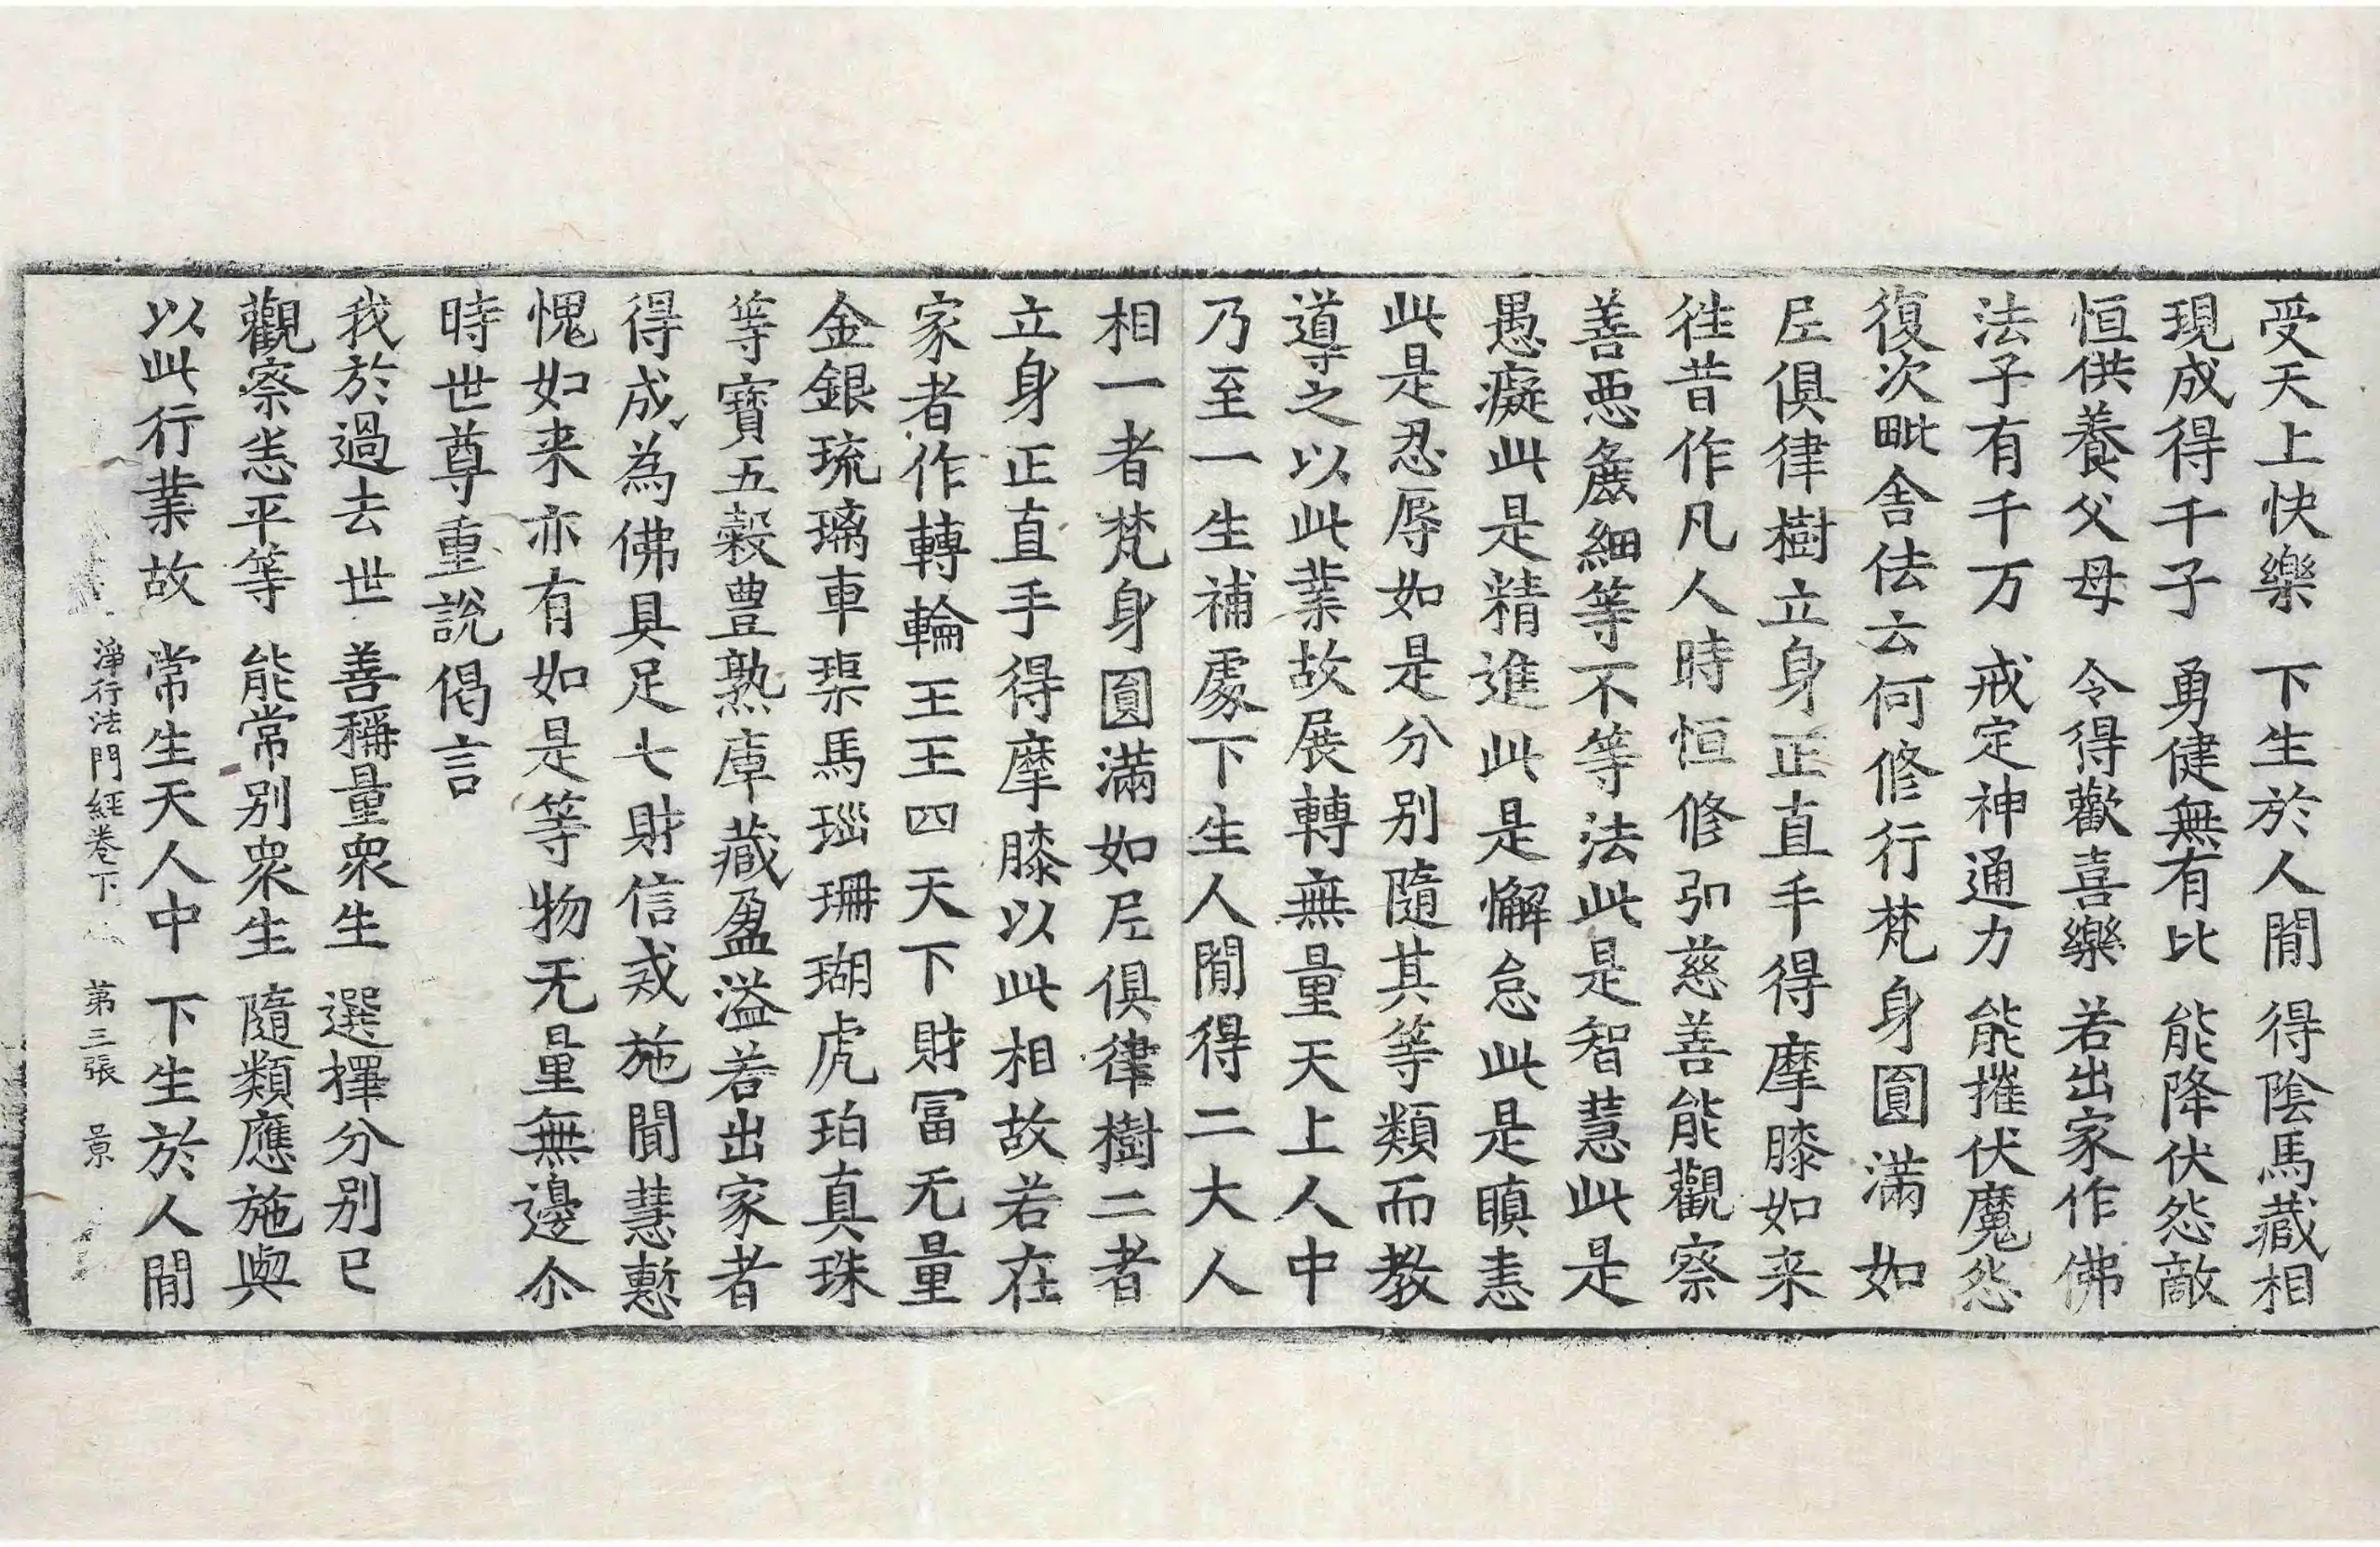 受天上快樂　下生於人閒　得陰馬藏相
現成得千子　勇健無有比　能降伏怨敵
恒供養父母　令得歡喜樂　若出家作佛
法子有千万　戒定神通力　能摧伏魔怨
復次毗舍佉云何修行梵身圓滿如
𡰱俱律樹立身正直手得摩膝如来
徃昔作凡人時恒修弘慈善能觀察
善惡麁細等不等法此是智慧此是
愚癡此是精進此是懈怠此是瞋恚
此是忍辱如是分别隨其等類而教
導之以此業故展轉無量天上人中
乃至一生補處下生人閒得二大人
相一者梵身圓滿如𡰱俱律樹二者
立身正直手得摩膝以此相故若在
家者作轉輪王王四天下財冨无量
金銀琉璃車璖馬瑙珊瑚虎珀真珠
等寶五穀豊熟庫藏盈溢若出家者
得成為佛具足七財信戒施聞慧慙
愧如来亦有如是等物无量無邊尒
時世尊重說偈言
我於過去世　善稱量衆生　選擇分别已
觀察恙平等　能常別衆生　隨類應施與
以此行業故　常生天人中　下生於人閒
淨行法門經卷下　第三張　景